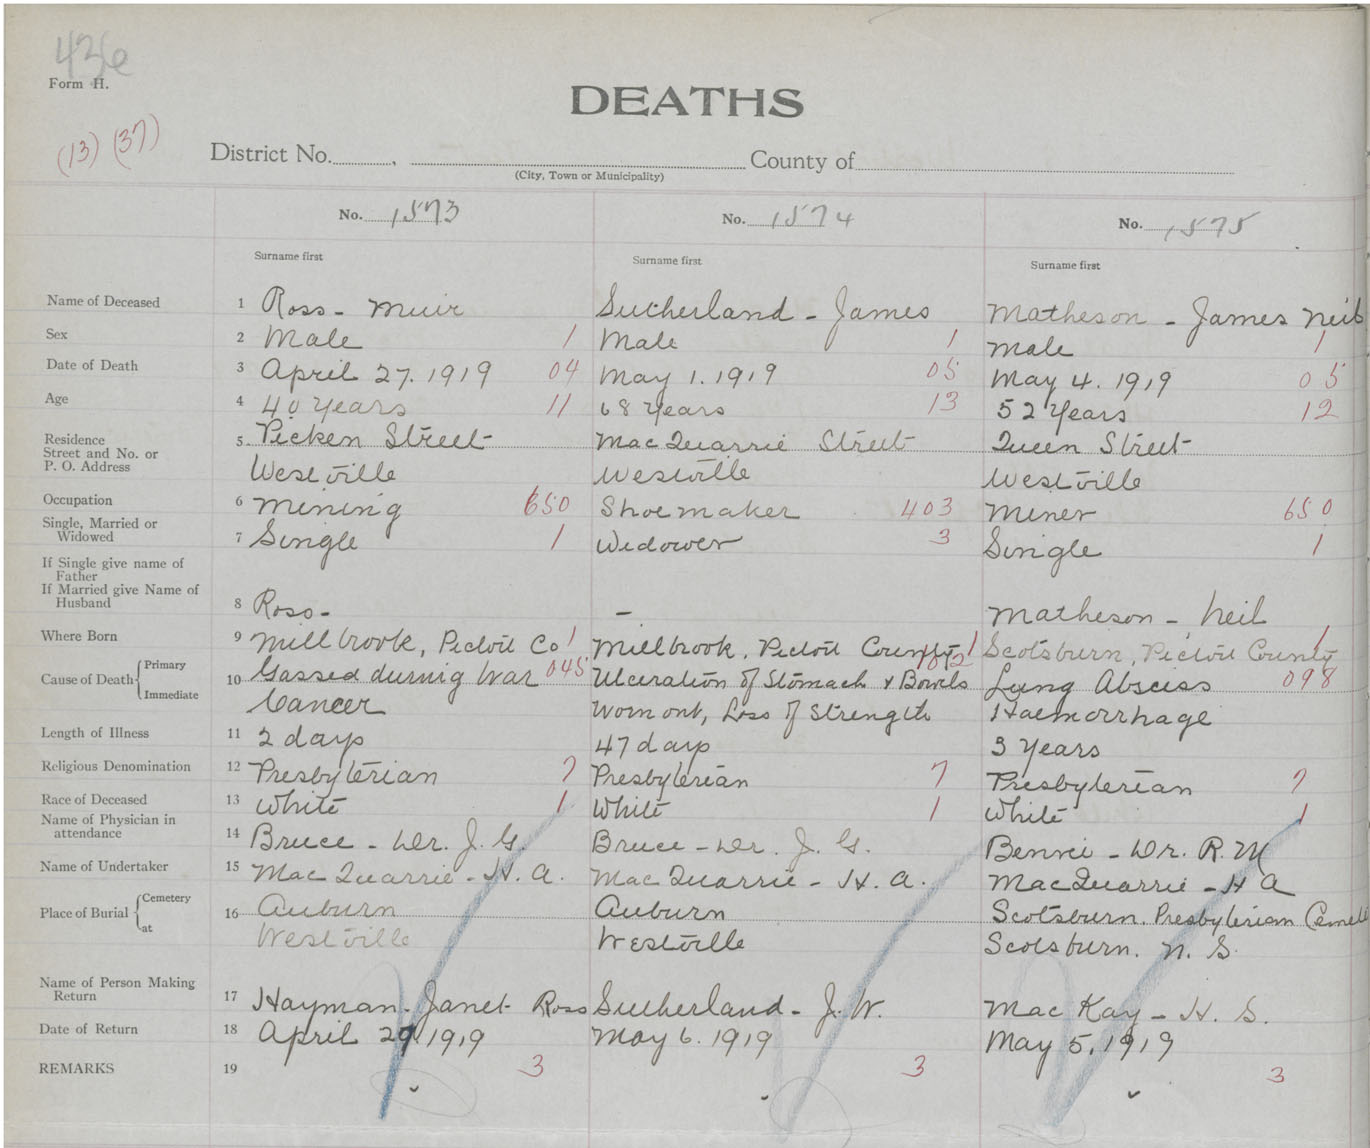 436
Form H.
(13) (37)
DEATHS
District No. , County of
(City, Town or Municipality)
No. 1573 No. 1574 No. 1575
Surname first Surname first Surname first
Name of Deceased 1 Ross - Muir Sutherland - James Matheson - James Neil
Sex 2 Male 1 Male 1 Male 1
Date of Death 3 April 27. 1919 04 May 1. 1919 05 May 4. 1919 05
Age 4 40 Years 11 68 Years 13 52 Years 12
Residence
Street and No. or
P. O. Address
5 Picken Street MacQuarrie Street Queen Street
Westville Westville Westville
Occupation 6 Mining 650 Shoemaker 403 Miner 650
Single, Married or
Widowed
7 Single 1 Widower 3 Single 1
If Single give name of
Father
If Married give Name of
Husband
8 Ross - - Matheson - Neil
Where Born 9 Millbrook, Pictou Co 1 Millbrook, Pictou County 1 Scotsburn, Pictou County 1
Cause of Death { Primary
Immediate
10 Gassed during War 045 Ulceration of Stomach & Bowels Lung Abscess 098
Cancer Worn out, Loss of Strength Haemorrhage
Length of Illness 11 2 days 47 days 3 Years
Religious Denomination 12 Presbyterian 7 Presbyterian 7 Presbyterian 7
Race of Deceased 13 White 1 White 1 White 1
Name of Physician in
attendance
14 Bruce - Dr. J. G. Bruce - Dr. J. G. Bennie - Dr. R. M
Name of Undertaker 15 MacQuarrie - H. A. MacQuarrie - H. A. MacQuarrie - H A
Place of Burial { Cemetery
at
16 Auburn Auburn Scotsburn. Presbyterian
Westville Westville Scotsburn. N. S.
Name of Person Making
Return
17 Hayman - Janet Ross Sutherland - J. W. MacKay - H. S.
Date of Return 18 April 29 1919 May 6. 1919 May 5, 1919
REMARKS 19 3 3 3